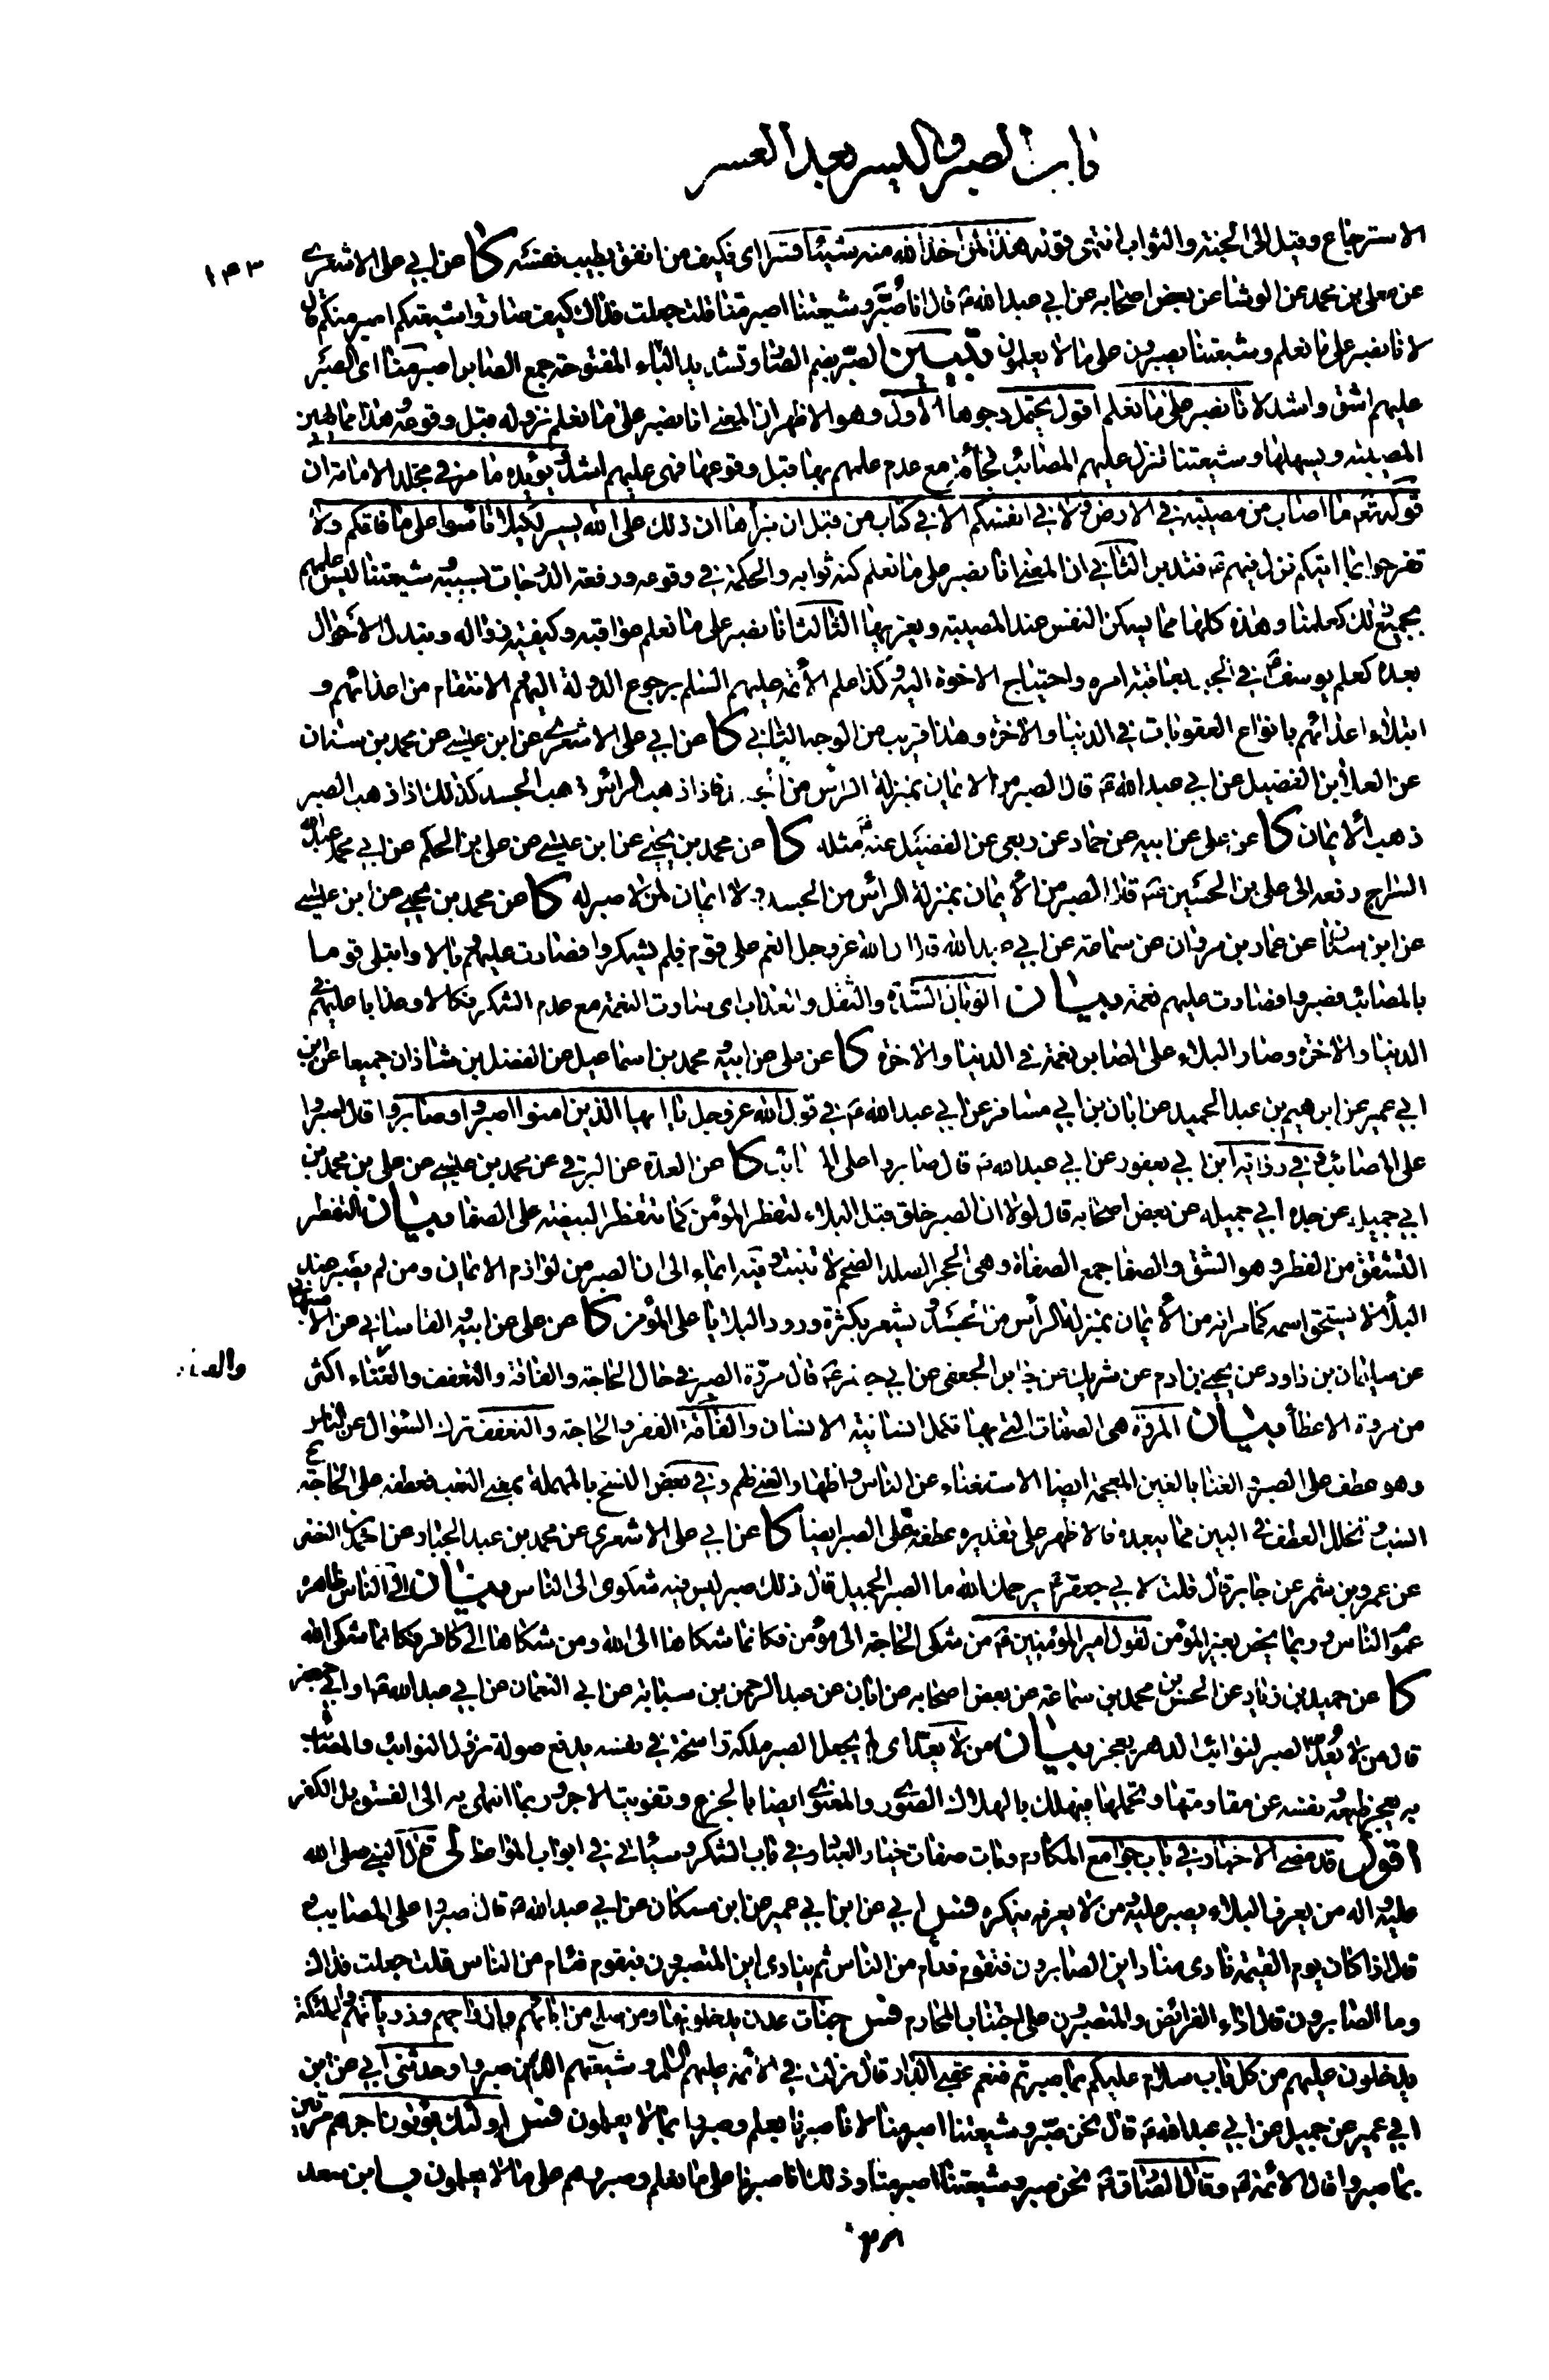 باب الصبر واليسر بعد العسر
الاسترجاع وقيل الى الجنة والثواب انتهى قوله هذا لمن اخذ الله منه شيئا قسرا اى فكيف من انفق بطيب نفسه كا عن ابي على الاشعرى
عن معلى بن محمد عن الوشا عن بعض اصحابه عن ابي عبد الله ع قال انا صُبَّر وشيعتنا اصبر منا قلت جعلت فداك كيف صار شيعتكم اصبر منكم قال
لانا نصبر على ما نعلم وشيعتنا يصبرون على ما لا يعلمون تبيين الصبّر بضم الصاد وتشديد الباء المفتوحة جمع الصابر اصبر منا اى الصبر
عليهم اشق واشد لانا نصبر على ما نعلم اقول يحتمل وجوها الاول وهو الاظهر ان المعنى انا نصبر على ما نعلم نزوله قبل وقوعه وهذا مما يهين
المصيبة ويسهلها وشيعتنا تنزل عليهم المصائب فجأة مع عدم علمهم بها قبل وقوعها فهى عليهم اشد ويؤيده ما مر فى مجلد الامامة ان
قوله تعالى ما اصاب من مصيبة فى الارض ولا فى انفسكم الا فى كتاب من قبل ان نبرأها ان ذلك على الله يسير لكيلا تاسوا على ما فاتكم ولا
تفرحوا بما اتيكم نزل فيهم ع فتدبر الثانى ان المعنى انا نصبر على ما نعلم كنه ثوابه والحكمة فى وقوعه ورفعة الدرجات بسببه وشيعتنا ليس علمهم
بجميع ذلك كعلمنا وهذه كلها مما يسكن النفس عند المصيبة ويعزيها الثالث انا نصبر على ما نعلم عواقبه وكيفية زواله وتبدل الاحوال
بعده كعلم يوسف ع فى الجب بعاقبة امره واحتياج الاخوة اليه وكذا علم الائمة عليهم السلم برجوع الدولة اليهم والانتقام من اعدائهم و
ابتلاء اعدائهم بانواع العقوبات فى الدنيا والاخرة وهذا قريب من الوجه الثانى كا عن ابي على الاشعرى عن ابن عيسى عن محمد بن سنان
عن العلا بن الفضيل عن ابي عبد الله ع قال الصبر من الايمان بمنزلة الراس من الجسد فاذا ذهب الراس ذهب الجسد كذلك اذا ذهب الصبر
ذهب الايمان كا عن على عن ابيه عن حماد عن ربعى عن الفضيل عنه ع مثله كا عن محمد بن يحيى عن ابن عيسى عن على بن الحكم عن ابي محمد عبد الله
السراج رفعه الى على بن الحسين ع قال الصبر من الايمان بمنزلة الراس من الجسد ولا ايمان لمن لا صبر له كا عن محمد بن يحيى عن ابن عيسى
عن ابن سنان عن عمار بن مروان عن سماعة عن ابي عبد الله قال ان الله عز وجل انعم على قوم فلم يشكروا فصارت عليهم وبالا وابتلى قوما
بالمصائب فصبروا فصارت عليهم نعمة بيان الوبال الشدة والثقل والعذاب اى صارت النعمة مع عدم الشكر نكالا وعذابا عليهم فى
الدنيا والاخرة وصار البلاء على الصابر نعمة فى الدنيا والاخرة كا عن على عن ابيه ومحمد بن اسماعيل عن الفضل بن شاذان جميعا عن ابن
ابي عمير عن ابرهيم بن عبد الحميد عن ابان بن ابي مسافر عن ابي عبد الله ع فى قول الله عز وجل يا ايها الذين امنوا اصبروا وصابروا قال اصبروا
على المصائب وفى رواية ابن ابي يعفور عن ابي عبد الله ع قال صابروا على المصائب كا عن العدة عن البرقى عن محمد بن عيسى عن على بن محمد بن
ابي جميلة عن جده ابي جميلة عن بعض اصحابه قال لولا ان الصبر خلق قبل البلاء لتفطر المؤمن كما تتفطر البيضة على الصفا بيان التفطر
التشقق من الفطر وهو الشق والصفا جمع الصفاة وهى الحجر الصلد الضخم لا تنبت وفيه ايماء الى ان الصبر من لوازم الايمان ومن لم يصبر عند
البلاء لا يستحق اسمه كما مر انه من الايمان بمنزلة الراس من الجسد ويشعر بكثرة ورود البلايا على المؤمن كا عن على عن ابيه والقاسانى عن الاصبهانى
عن سليمان بن داود عن يحيى بن ادم عن شريك عن جابر الجعفى عن ابي جعفر ع قال مروّة الصبر فى حال الحاجة والفاقة والتعفف والغناء اكثر
من مروة الاعطأ بيان المروّة هى الصفات التى بها تكمل انسانية الانسان والفاقة الفقر والحاجة والتعفف ترك السؤال عن الناس
وهو عطف على الصبر والغنا بالغين المعجمة ايضا الاستغناء عن الناس واظهار الغنى لهم وفى بعض النسخ بالمهملة بمعنى التعب فعطفه على الحاجة
انسب وتخلل العطف فى البين مما يبعده فالاظهر على تقديره عطفه على الصبر ايضا كا عن ابي على الاشعرى عن محمد بن عبد الجبار عن احمد بن النضر
عن عمرو بن شمر عن جابر قال قلت لابي جعفر ع يرحمك الله ما الصبر الجميل قال ذلك صبر ليس فيه شكوى الى الناس بيان الى الناس ظاهره
عموم الناس وربما يخص بغير المؤمن لقول امير المؤمنين ع من شكى الحاجة الى مؤمن فكانما شكاها الى الله ومن شكاها الى كافر فكانما شكى الله
كا عن حميد بن زياد عن الحسن بن محمد بن سماعة عن بعض اصحابه عن ابان عن عبد الرحمن بن سيابة عن ابي النعمان عن ابي عبد الله ع او ابي جعفر
قال من لا يُعِدّ الصبر لنوائب الدهر يعجز بيان من لا يعد اى لم يجعل الصبر ملكة راسخة فى نفسه يدفع صولة نزول النوائب والمصائب
به يعجز طبعه ونفسه عن مقاومتها وتحملها فيهلك بالهلاك الصورى والمعنوى ايضا بالجزع وتفويت الاجر وربما انتهى به الى الفسق بل الكفر
اقول قد مضى الاخبار فى باب جوامع المكارم وباب صفات خيار العباد وفى باب الشكر وسيأتى فى ابواب المواعظ لى قال النبى صلى الله
عليه واله من يعرف البلاء يصبر عليه ومن لا يعرفه ينكره فس ابي عن ابن ابي عمير عن ابن مسكان عن ابي عبد الله ع قال اصبروا على المصايب و
قال اذا كان يوم القيمة نادى مناد اين الصابرون فيقوم فئام من الناس ثم ينادى اين المتصبرون فيقوم فئام من الناس قلت جعلت فداك
وما الصابرون قال اداء الفرائض والمتصبرون على اجتناب المحارم فس جنات عدن يدخلونها ومن صلح من ابائهم وازواجهم وذرياتهم والملئكة
يدخلون عليهم من كل باب سلام عليكم بما صبرتم فنعم عقبى الدار قال نزلت فى الائمة عليهم السلم وشيعتهم الذين صبروا وحدثنى ابي عن ابن
ابي عمير عن جميل عن ابي عبد الله ع قال نحن صبّر وشيعتنا اصبر منا لانا صبرنا بعلم وصبروا بما لا يعلمون فس اولئك يؤتون اجرهم مرتين
بما صبروا قال الائمة ع وقال الصادق ع نحن صبر وشيعتنا اصبر منا وذلك انا صبرنا على ما نعلم وصبرهم على ما لا يعلمون ب ابن سعد